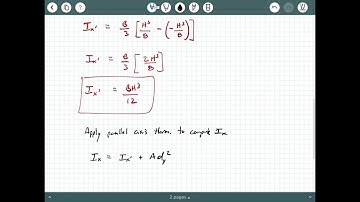 I_x' = B/3 [H³/8 - (-H³/8)]
I_x' = B/3 [2H³/8]
I_x' = BH³/12
Apply parallel axis thrm. to compute I_x
I_x = I_x' + A d_y²
2 pages